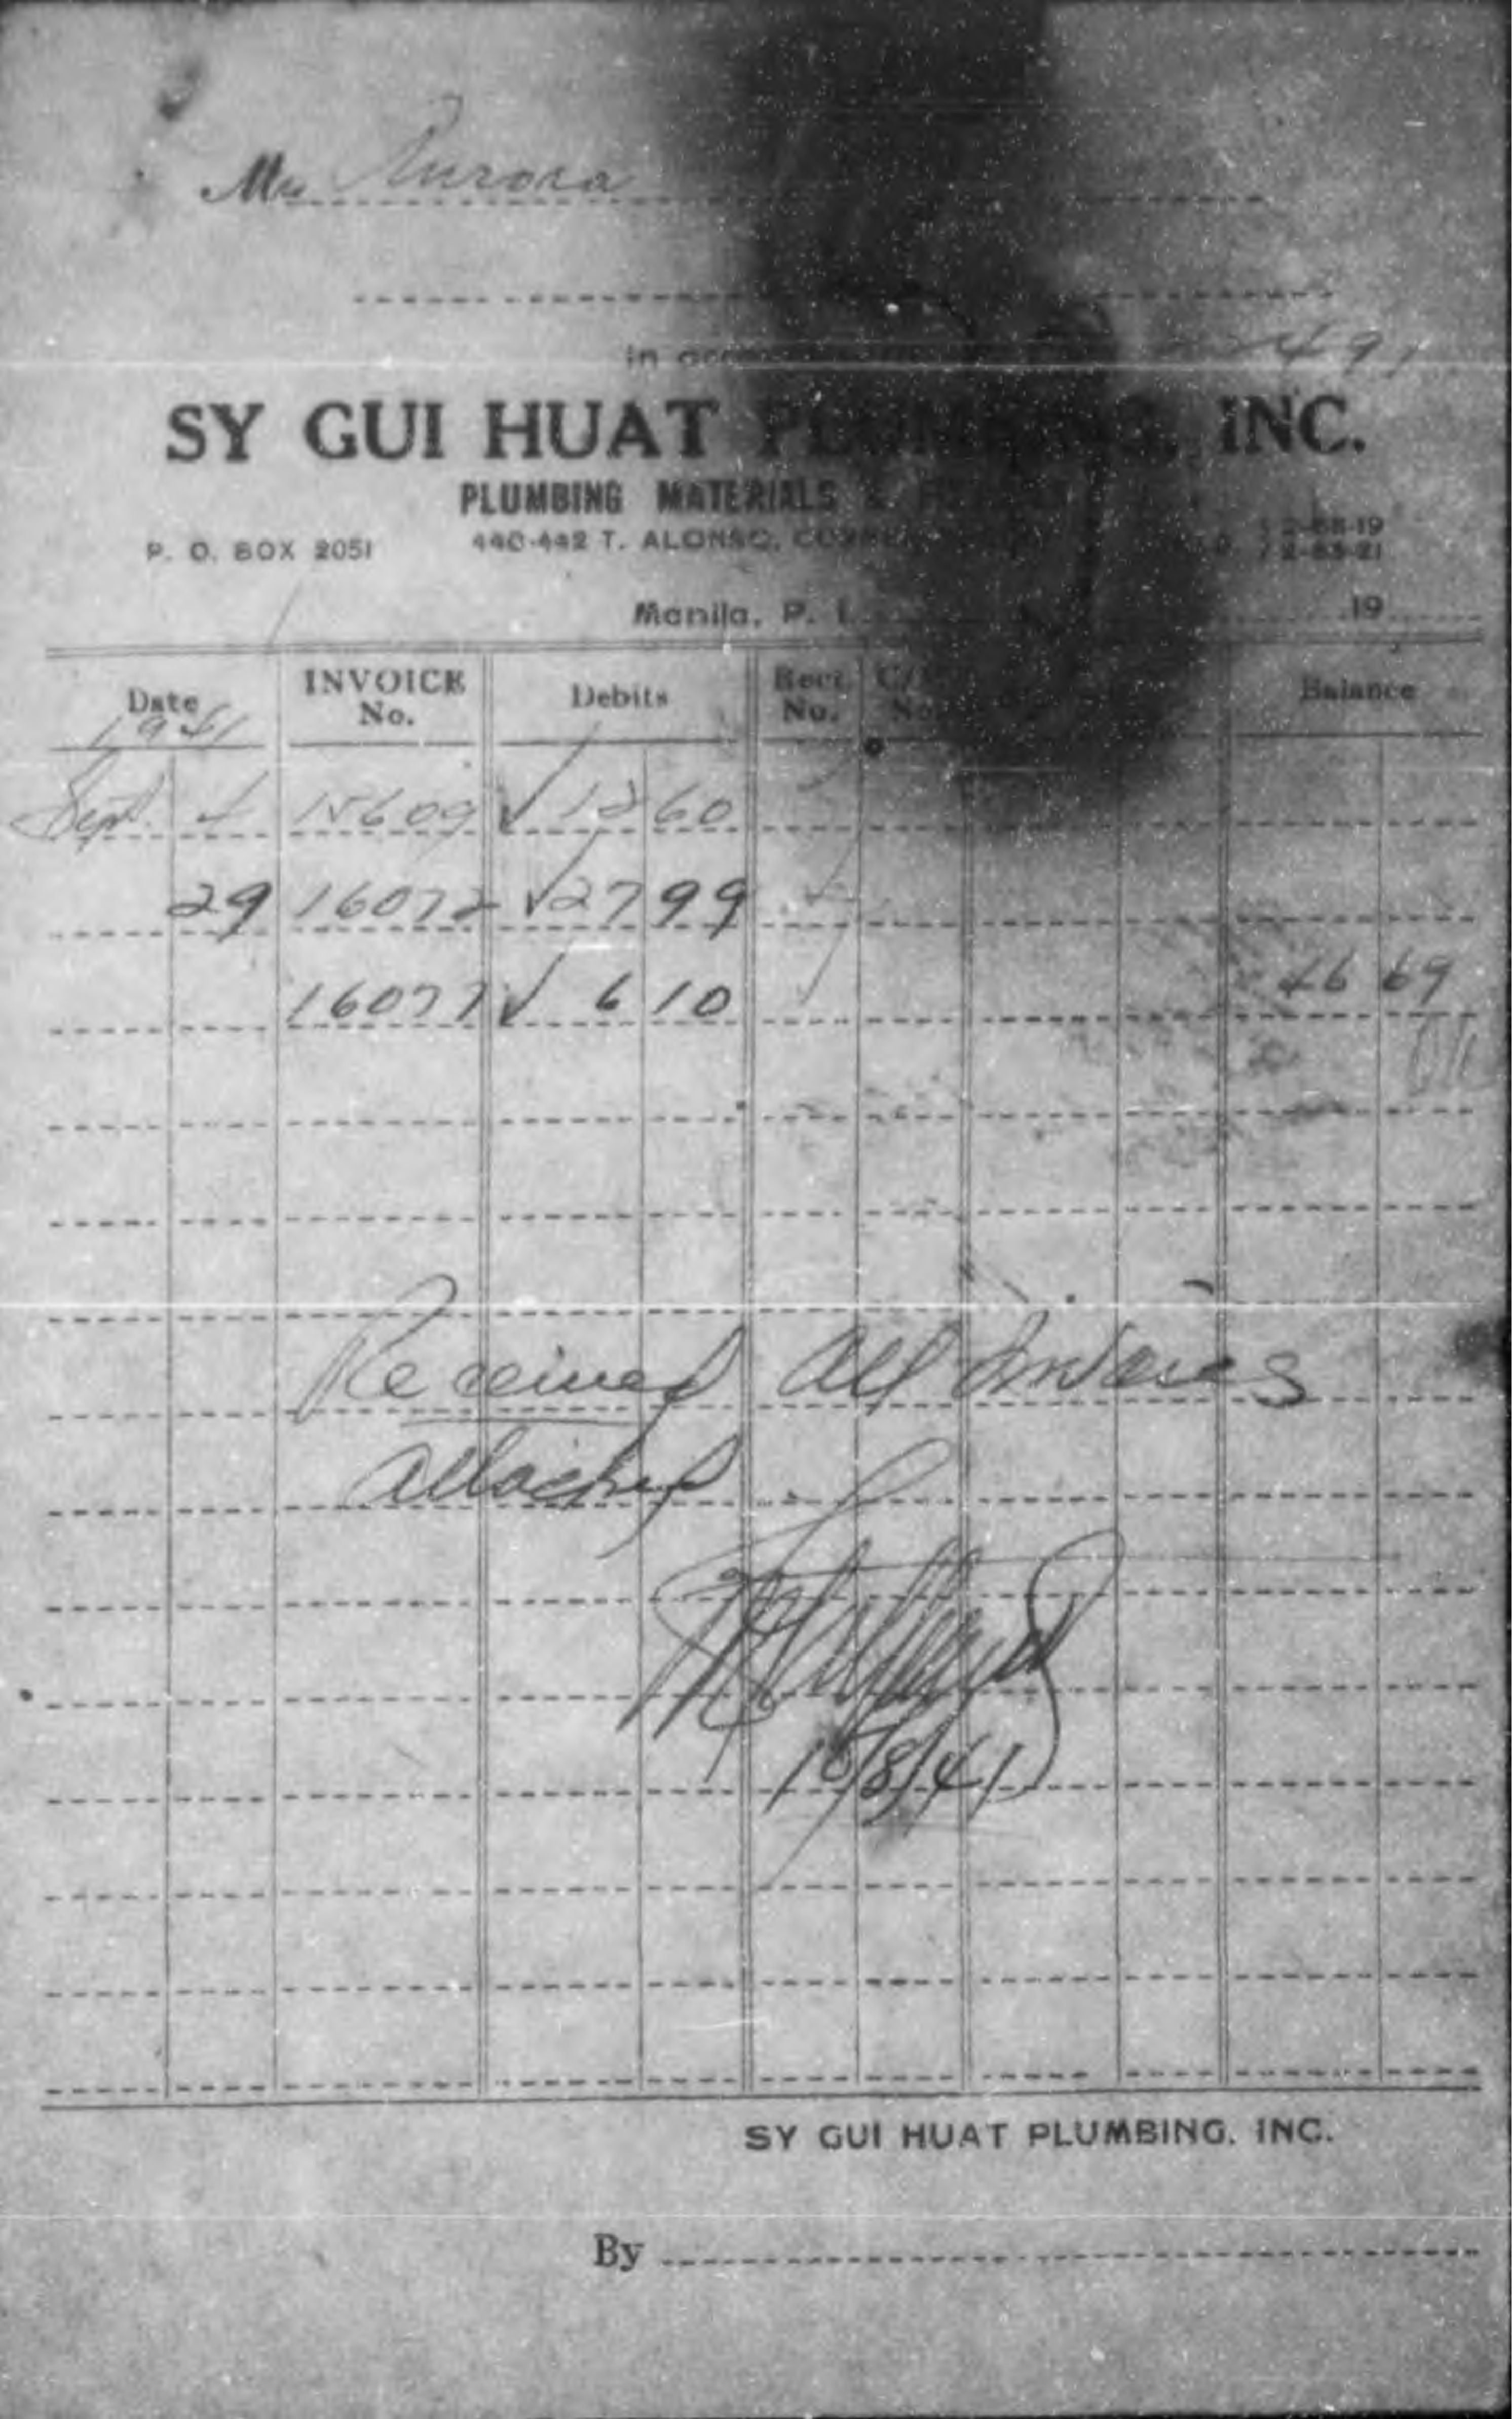 Mr. Aurora
in
491
SY GUI HUAT PLUMBING, INC.
PLUMBING MATERIALS &
P. O. BOX 2051 440-442 T. ALONSO,
2-83-21
Manila, P. I. 19
Date INVOICE No. Debits Rect. No. Balance
1941
Sept. 4 15609 ✓ 12 60
29 16072 ✓ 27 99
16077 ✓ 6 10 46 69
Received all invoices
attached
10/8/41
SY GUI HUAT PLUMBING, INC.
By